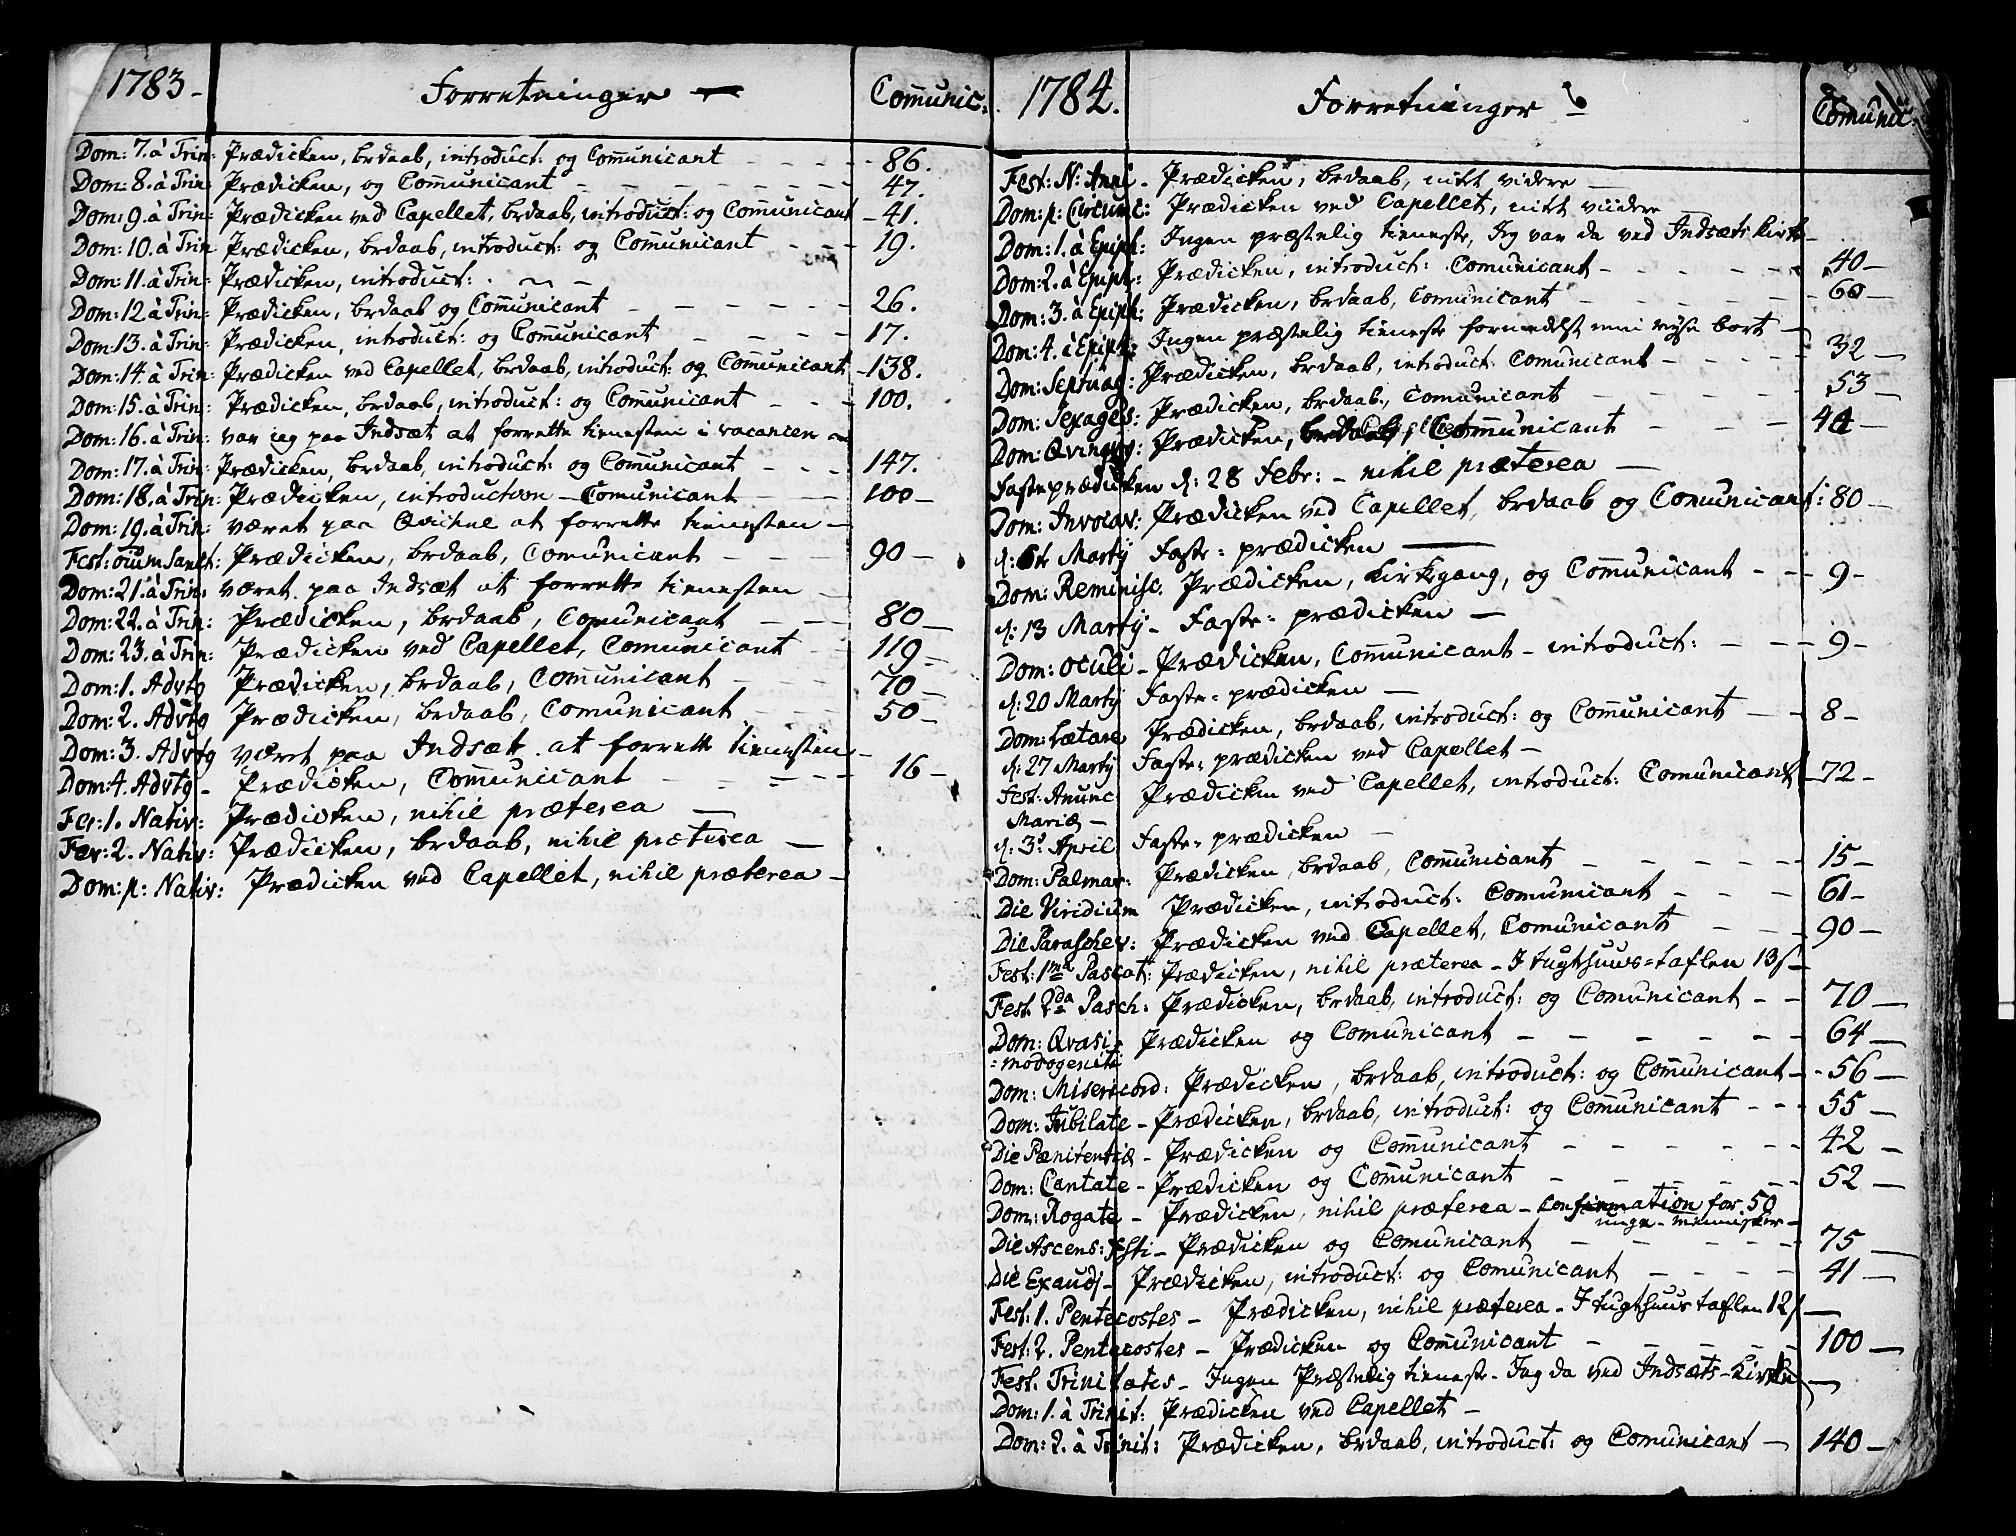 1783 - Forretninger - Com̄unic:
Dom: 7. à Trin: Prædicken, brdaab, introduct: og Com̄unicant - - - - 86.
Dom: 8. à Trin: Prædicken, og Com̄unicant - - - - - - 47.
Dom: 9. à Trin: Prædicken ved Capellet, brdaab, introduct: og Com̄unicant - 41.
Dom: 10. à Trin Prædicken, brdaab, introduct: og Com̄unicant - - - 19.
Dom: 11. à Trin: Prædicken, introduct: -
Dom: 12 à Trin: Prædicken, brdaab og Com̄unicant - - - - - 26.
Dom: 13. à Trin: Prædicken, introduct: og Com̄unicant - - - - 17.
Dom: 14. à Trin: Prædicken ved Capellet, brdaab, introduct: og Com̄unicant - 138.
Dom: 15. à Trin: Prædicken, brdaab, introduct: og Com̄unicant - - - 100.
Dom: 16. à Trin: var jeg paa Indsæt at forrette tienesten i vacancen -
Dom: 17. à Trin: Prædicken, brdaab, introduct: og Com̄unicant - - - 147.
Dom: 18. à Trin: Prædicken, introduction - Comunicant - - 100 -
Dom: 19. à Trin: været paa Qvickne at forrette tienesten -
Fest: om̄ium Sanct: Prædicken, brdaab, Comunicant - - - 90 -
Dom: 21. à Trin: været paa Indsæt at forrette tienesten -
Dom: 22. à Trin: Prædicken, brdaab, Comunicant - - - 80 -
Dom: 23. à Trin: Prædicken ved Capellet, Comunicant - - 119 -
Dom: 1. Advtg Prædicken, brdaab, Com̄unicant - - - 70 -
Dom: 2. Advtg Prædicken, brdaab, Comunicant - - - 50 -
Dom: 3. Advtg været paa Indsæt at forrette tienesten -
Dom: 4. Advtg - Prædicken, Com̄unicant - - - - 16 -
Fer: 1. Nativ: Prædicken, nihil præterea -
Fer: 2. Nativ: Prædicken, brdaab, nihil præterea -
Dom: p: Nativ: Prædicken ved Capellet, nihil præterea -
1784. Forretninger Comunic:
Fest: N: Anni - Prædicken, brdaab, intet videre -
Dom: p: Circumc: Prædicken ved Capellet, intet viidere -
Dom: 1. à Epiph: Ingen præstelig tieneste, Jeg var da ved Indsæts kirke -
Dom: 2. à Epiph: Prædicken, introduct: Comunicant - - - - - 40 -
Dom: 3. à Epiph: Prædicken, brdaab, Comunicant - - - - - 60 -
Dom: 4. à Epiph: Ingen præstelig tieneste formedelst min ryse bort -
Dom: Septuag: Prædicken, brdaab, introduct: Comunicant - - - - 32 -
Dom: Sexages: Prædicken, brdaab, Comunicant - - - - - 53 -
Dom: Qvinqvg: Prædicken, Com̄unicant - - - - 44 -
Fasteprædicken d: 28 Febr: - nihil præterea -
Dom: Invocav: Prædicken ved Capellet, brdaab og Comunicant: 80 -
d: 6t Martij Faste-prædicken -
Dom: Reminisc. Prædicken, kirkegang, og Com̄unicant - - - 9 -
d: 13 Martij - Faste-prædicken -
Dom: Oculi - Prædicken, Com̄unicant - introduct: - - - 9 -
d: 20 Martij Faste-prædicken -
Dom: Lætare Prædicken, brdaab, introduct: og Com̄unicant - - 8 -
d: 27 Martij Faste-prædicken ved Capellet -
Fest: Anunc Prædicken ved Capellet, introduct: Comunicant 72 -
Mariæ -
d: 3. April Faste-prædicken -
Dom: Palmar: Prædicken, brdaab, Com̄unicant - - - - - 15 -
Die Viridium Prædicken, introduct: Comunicant - - - 61 -
Die Paraschev: Prædicken ved Capellet, Comunicant - - - 90 -
Fest: 1ma Pascat: Prædicken, nihil præterea - I tugthuus-taflen 13 ſ -
Fest: 2da Pasch: Prædicken, brdaab, introduct: og Comunicant - - 70 -
Dom: Qvasi Prædicken og Comunicant - - - - - - 64 -
= modogeniti
Dom: Misericord: Prædicken, brdaab, introduct: og Com̄unicant - - 56 -
Dom: Jubilate - Prædicken, brdaab, introduct: og Com̄unicant - - - 55 -
Die Pænitentiæ - Prædicken og Com̄unicant - - - - - 42 -
Dom: Cantate - Prædicken og Com̄unicant - - - - - 52 -
Dom: Rogate - Prædicken, nihil præterea - Confirmation for 50
unge-mennisker -
Die Ascens: Xsti - Prædicken og Comunicant - - - - - 75 -
Die Exaudj - Prædicken, introduct: og Comunicant - - - - 41 -
Fest: 1. Pentecostes - Prædicken, nihil præterea - I tugthuus taflen 12 ſ -
Fest: 2. Pentecostes - Prædicken og Com̄unicant - - - - - 100 -
Fest: Trinitatis - Ingen Præstelig tieneste - Jeg da ved Indsæts-Kirke -
Dom: 1. à Trinit: Prædicken ved Capellet -
Dom: 2. à Trinit: Prædicken, brdaab, introduct: og Comunicant - 140 -